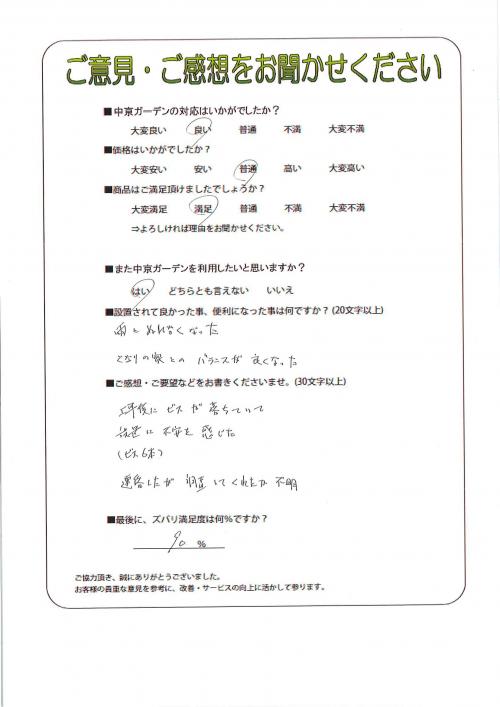 ご意見・ご感想をお聞かせください
■中京ガーデンの対応はいかがでしたか？
大変良い 良い 普通 不満 大変不満
■価格はいかがでしたか？
大変安い 安い 普通 高い 大変高い
■商品はご満足頂けましたでしょうか？
大変満足 満足 普通 不満 大変不満
⇒よろしければ理由をお聞かせください。
■また中京ガーデンを利用したいと思いますか？
はい どちらとも言えない いいえ
■設置されて良かった事、便利になった事は何ですか？(20文字以上)
雨に ぬれなくなった
となりの家との バランスが 良くなった
■ご感想・ご要望などをお書きくださいませ。(30文字以上)
にビスが 落ちていて
に 不安を 感じた
(ビス6本)
連絡したが 調査してくれたか 不明
■最後に、ズバリ満足度は何％ですか？
90 ％
ご協力頂き、誠にありがとうございました。
お客様の貴重な意見を参考に、改善・サービスの向上に活かして参ります。